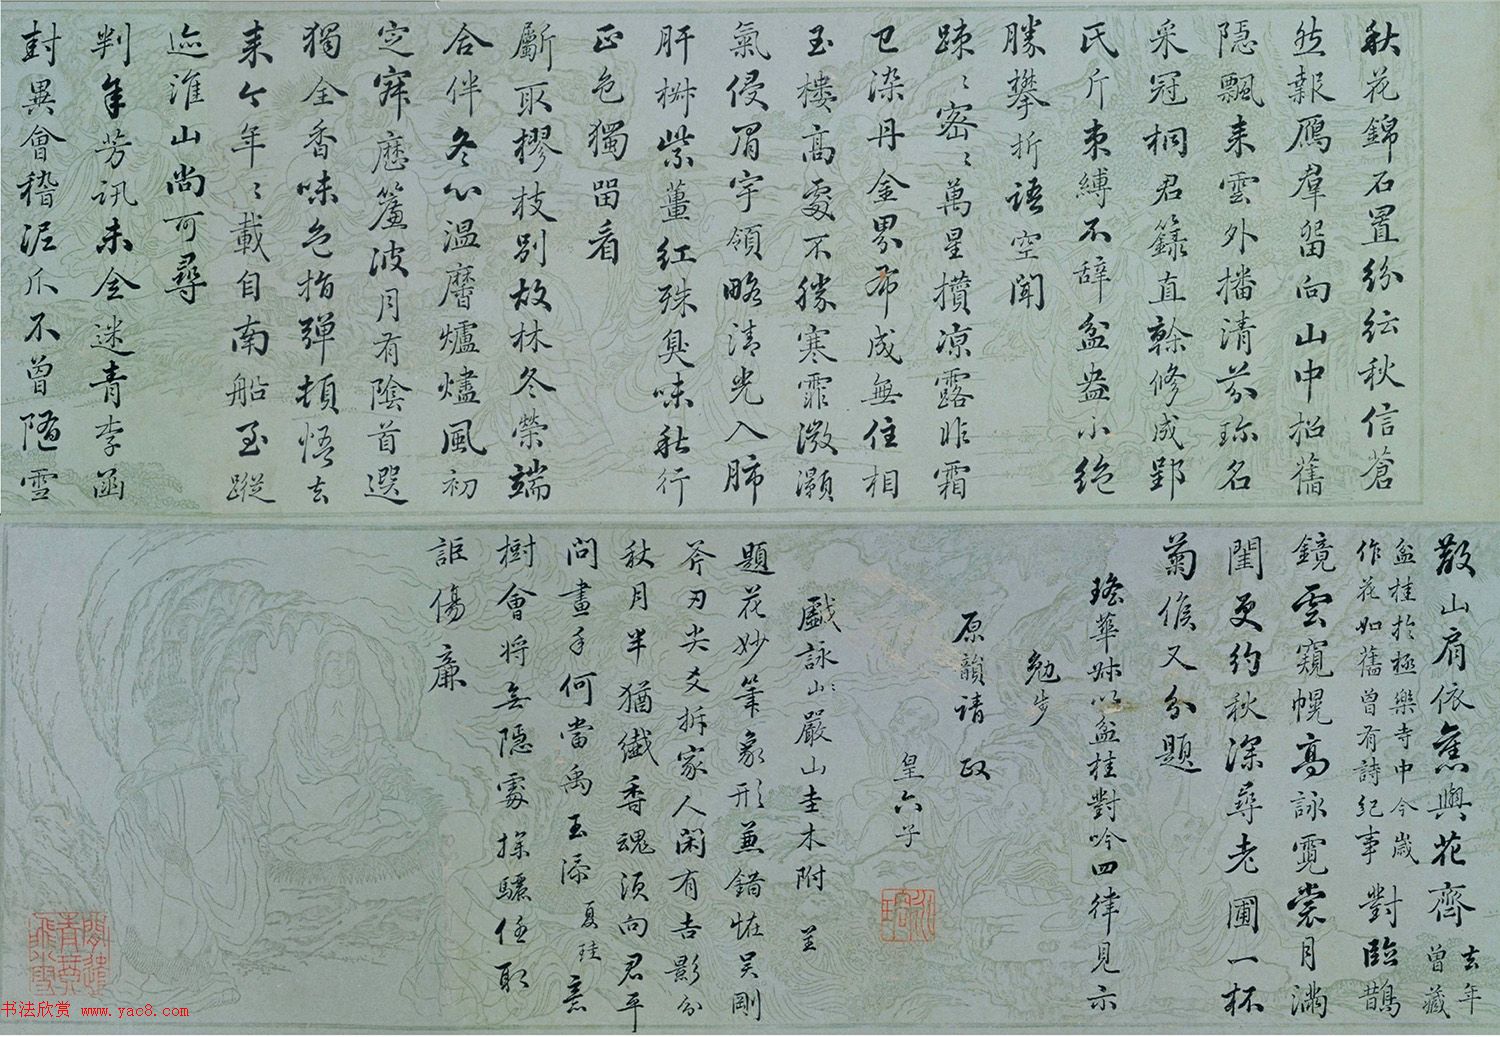 秋花錦石置紛紜秋信蒼
然報鴈羣留向山中招舊
隐飄来雲外播清芬珎名
采冠桐君籙直榦修成郢
氏斤束縛不辞盆盎小絶
勝攀折語空聞
踈〻密〻萬星攢凉露非霜
已染丹金界布成無住相
玉樓高處不勝寒霏微灝
氣侵眉宇領略清光入肺
肝椒紫薑紅殊臭味秋行
正色獨留看
斸取樛枝别故林冬榮端
合伴冬心温黁爐燼風初
定寐歴簷波月有陰首選
獨全香味色指弹頓悟去
来今年〻載自南船至蹤
迹淮山尚可尋
判年芳訊未全迷青李函
封異會稽泥爪不曾随雪
散山肩依舊與花齊去年曾藏
盆桂於極樂寺中今歳
作花如舊曾有詩紀事對臨鵲
鏡雲窺幌高詠霓裳月满
閨更約秋深尋老圃一杯
菊候又分題
瑤華妹以盆桂對吟四律見示
勉步
原韻請政
皇六子
戲詠山〻嚴山圭木附呈
題花妙筆象形兼錯恠吴剛
斧刃尖爻拆家人閑有吉影分
秋月半猶纎香魂須向君平
問畫手何當禹玉添夏珪意
樹會将無隠處探驪任取
詎傷廉
书法欣赏 www.yac8.com